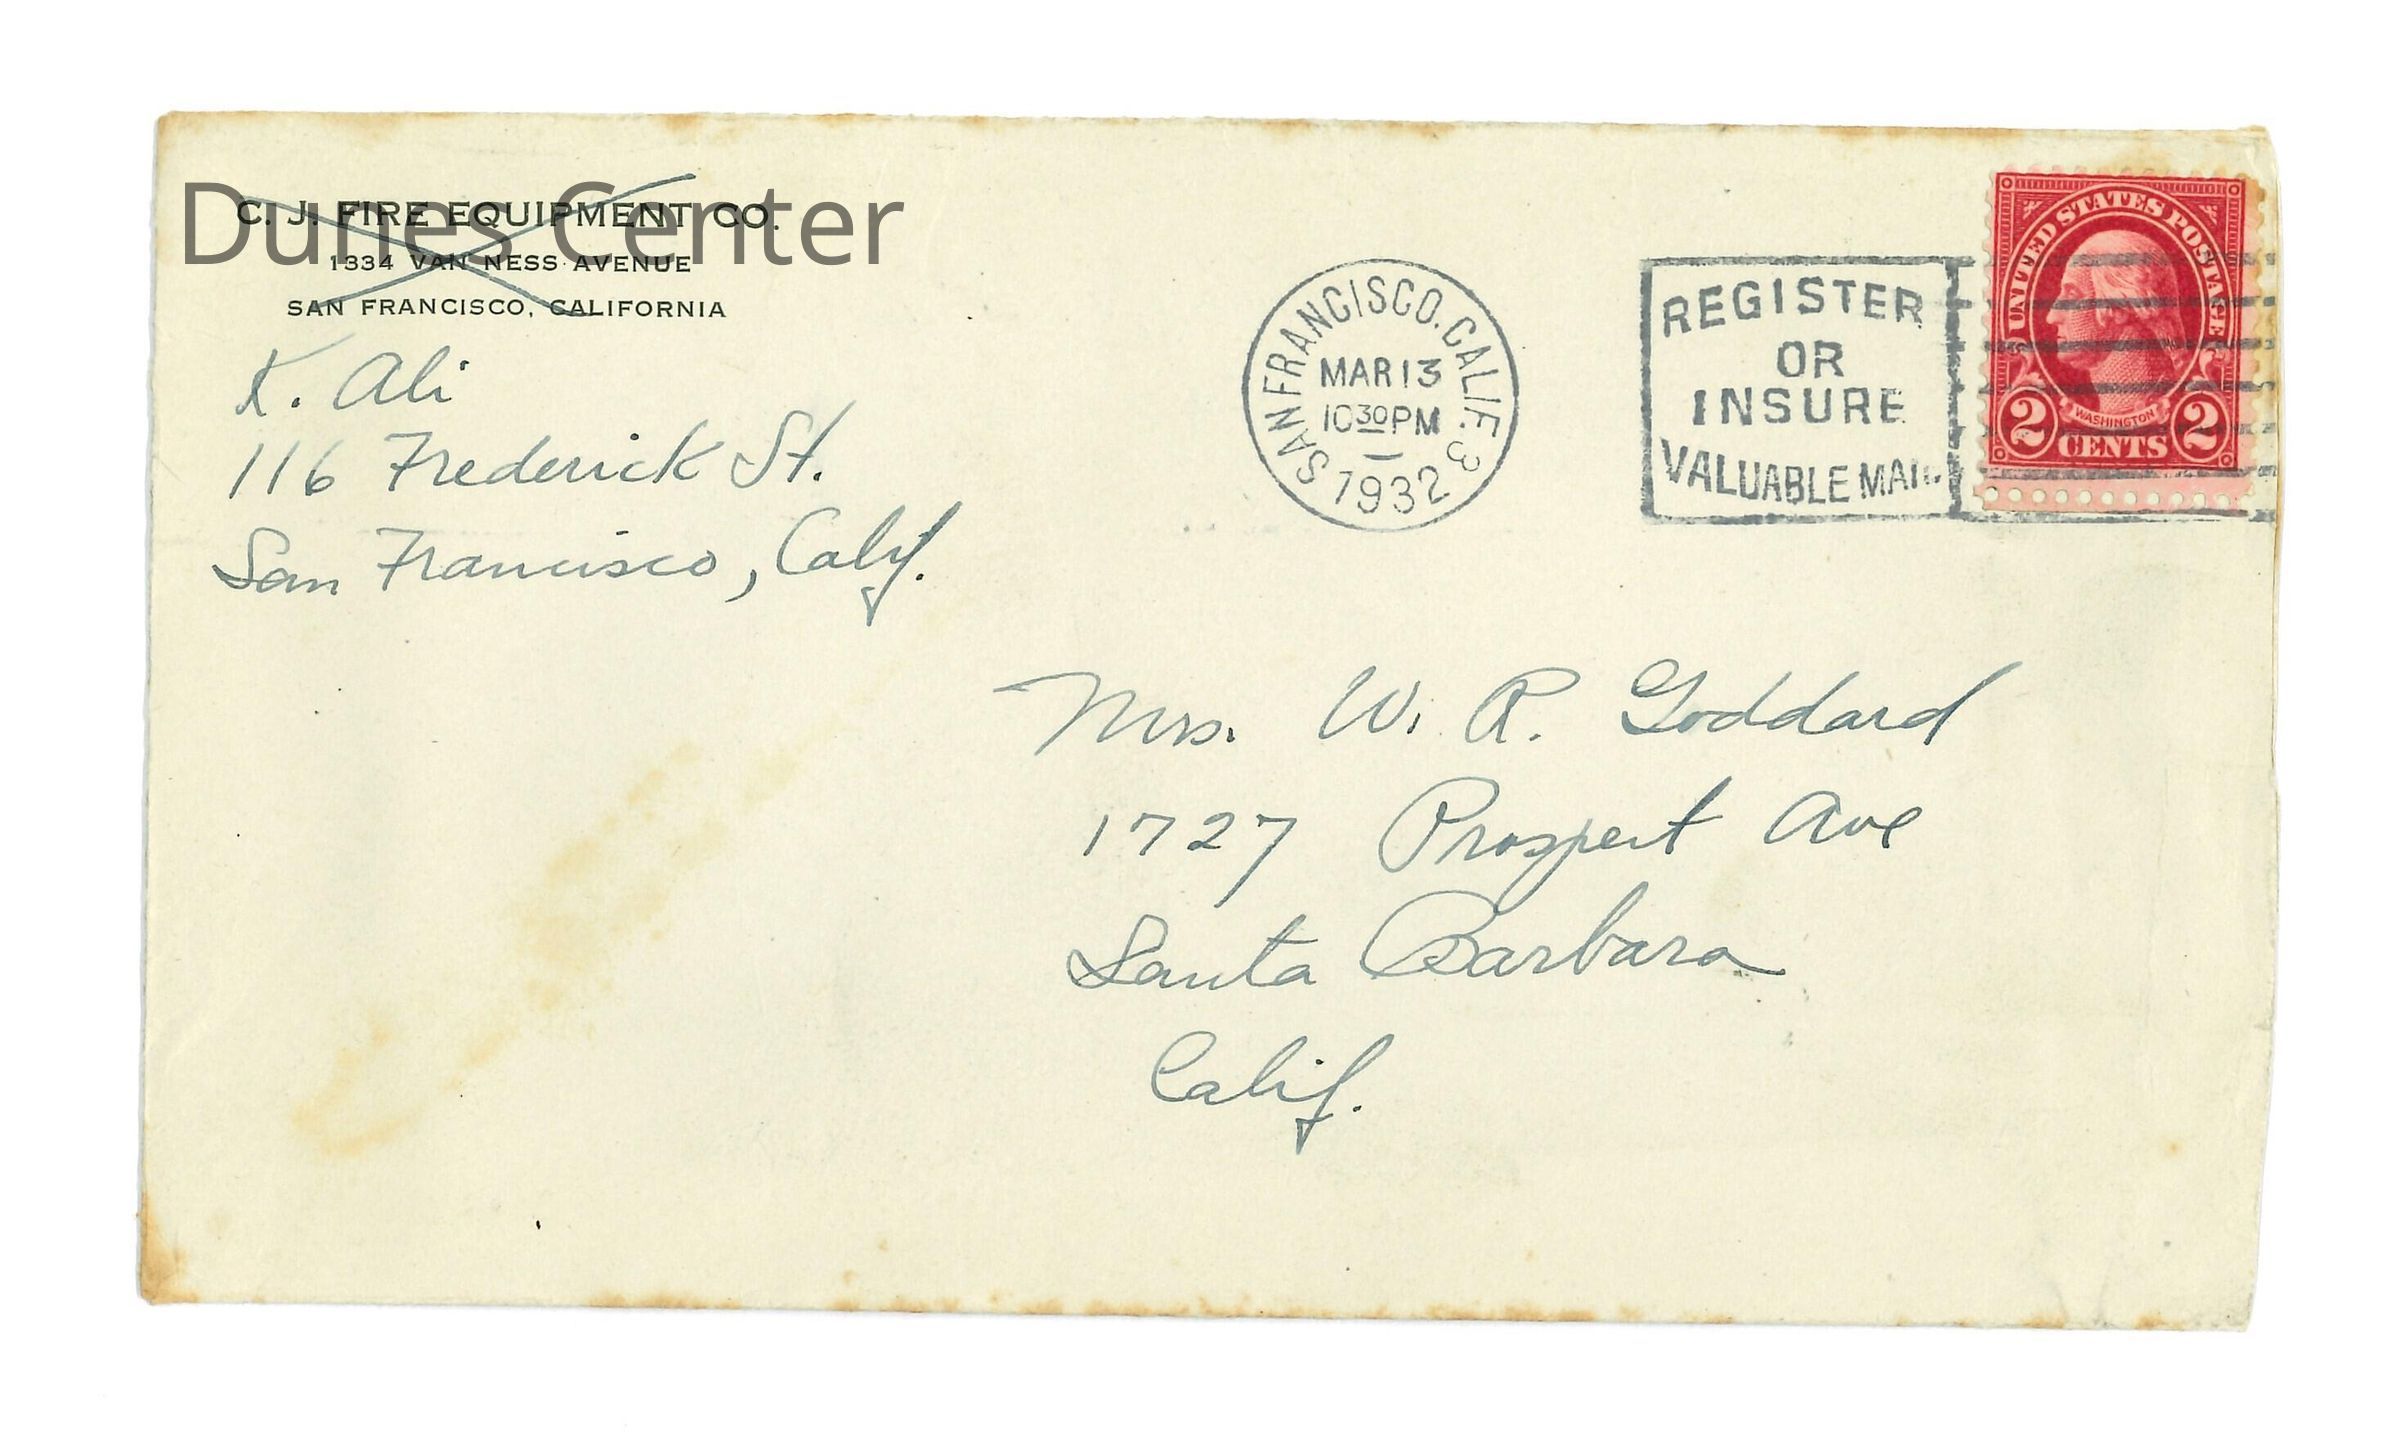 Dunes Center
C. J. FIRE EQUIPMENT CO.
1334 VAN NESS AVENUE
SAN FRANCISCO, CALIFORNIA
K. Ali
116 Frederick St.
San Francisco, Calif.
SAN FRANCISCO, CALIF. 3
MAR 13
10 30 PM
1932
REGISTER
OR
INSURE
VALUABLE MAIL
UNITED STATES POSTAGE
WASHINGTON
2 CENTS 2
Mrs. W. R. Goddard
1727 Prospect Ave
Santa Barbara
Calif.